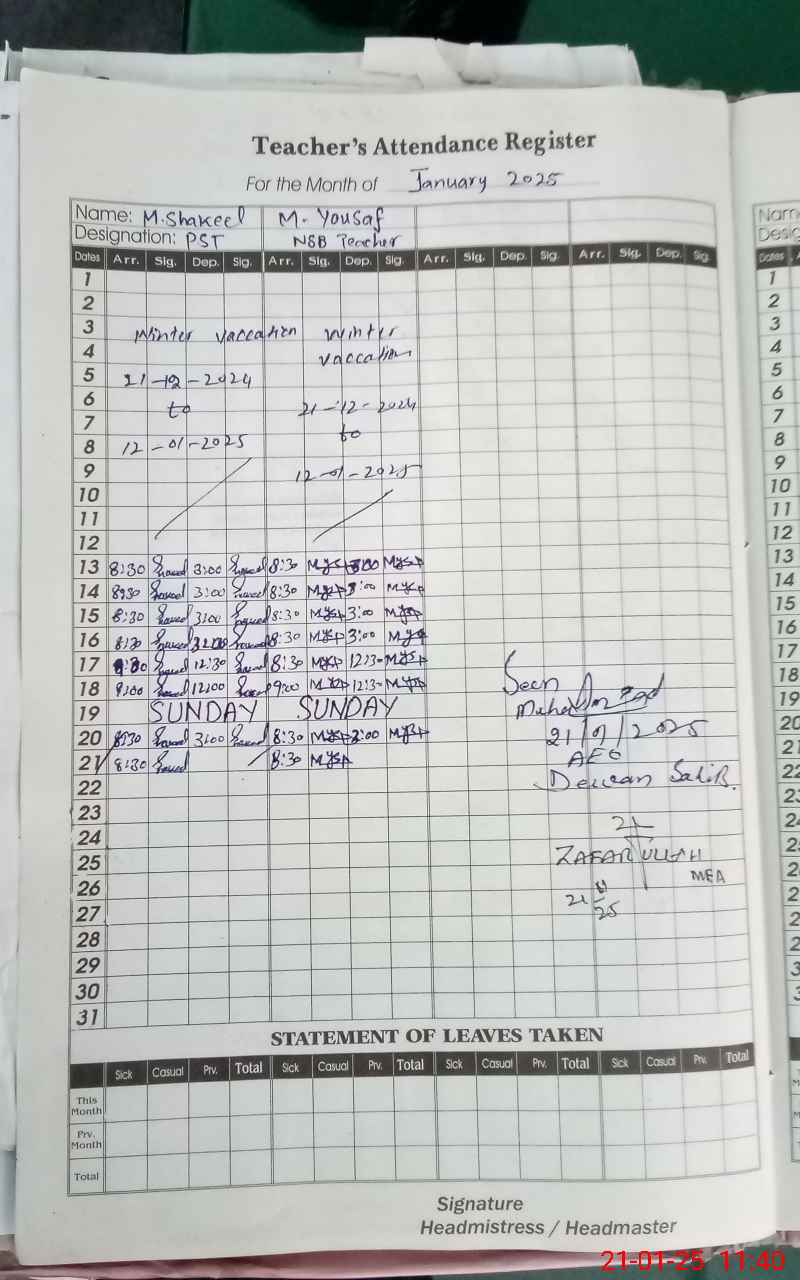 Teacher's Attendance Register
For the Month of January 2025
Name: M.Shakeel M. Yousaf
Designation: PST NSB Teacher
Dates Arr. Sig. Dep. Sig. Arr. Sig. Dep. Sig. Arr. Sig. Dep. Sig. Arr. Sig. Dep. Sig.
1
2
3 Winter vaccation Winter
4 vaccation
5 21-12-2024
6 to 21-12-2024
7 to
8 12-01-2025
9 12-01-2025
10
11
12
13 8:30 3:00 8:30 3:00
14 8:30 3:00 8:30 3:00
15 8:30 3:00 8:30 3:00
16 8:30 3:00 8:30 3:00
17 8:30 12:30 8:30 12:30
18 9:00 12:00 9:00 12:30
Seen
19 SUNDAY SUNDAY
20 8:30 3:00 8:30 3:00
21/01/2025
21 8:30 8:30
AEO
22
Dewan Sahib.
23
24
21
25
ZAFAR ULLAH
MEA
26
21
27
25
28
29
30
31
STATEMENT OF LEAVES TAKEN
Sick Casual Prv. Total Sick Casual Prv. Total Sick Casual Prv. Total Sick Casual Prv. Total
This
Month
Prv.
Month
Total
Signature
Headmistress / Headmaster
21-01-25 11:40